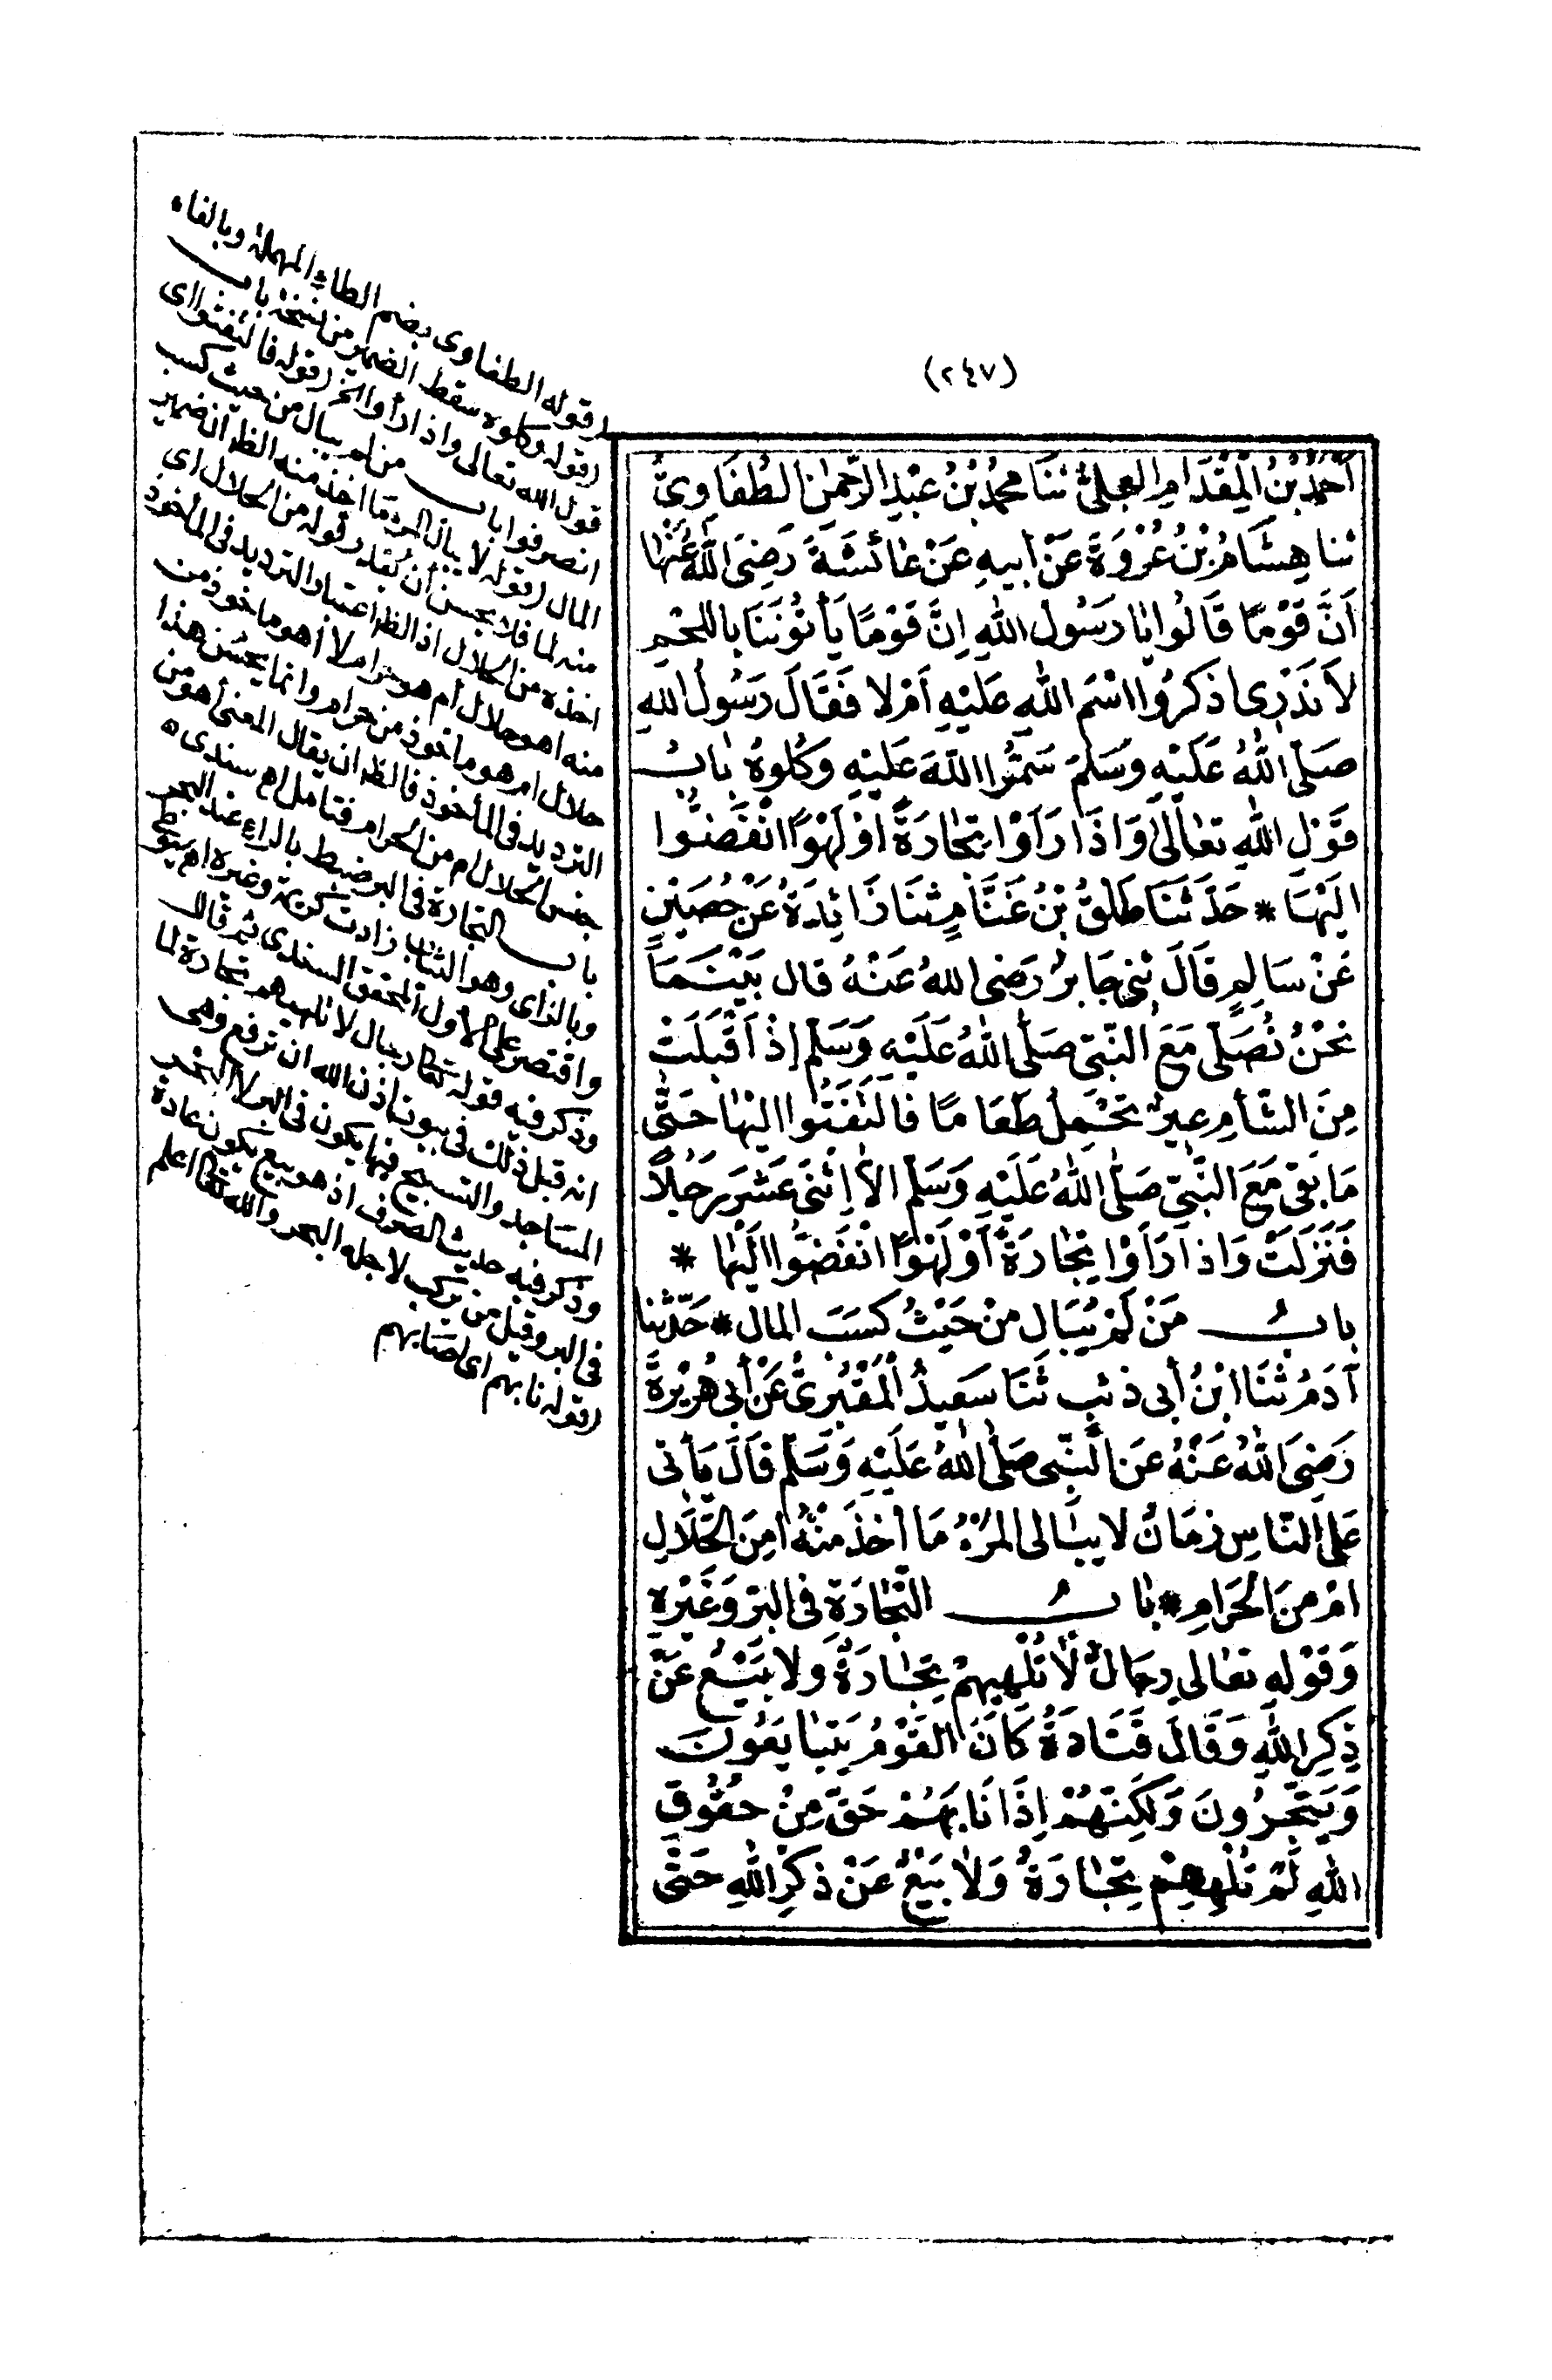 (٢٤٧)
أَحْمَدُ بْنُ الْمِقْدَامِ الْعِجْلِىُّ ثَنَا مُحَمَّدُ بْنُ عَبْدِ الرَّحْمٰنِ الطُّفَاوِىُّ
ثنا هِشَامُ بْنُ عُرْوَةَ عَنْ أَبِيهِ عَنْ عَائِشَةَ رَضِىَ اللّٰهُ عَنْهَا
أَنَّ قَوْمًا قَالُوا يَا رَسُولَ اللّٰهِ إِنَّ قَوْمًا يَأْتُونَنَا بِاللَّحْمِ
لَا نَدْرِى أذَكَرُوا اسْمَ اللّٰهِ عَلَيْهِ أَمْ لَا فَقَالَ رَسُولُ اللّٰهِ
صَلَّى اللّٰهُ عَلَيْهِ وَسَلَّمَ سَمُّوا اللّٰهَ عَلَيْهِ وَكُلُوهُ بَابُ
قَوْلِ اللّٰهِ تَعَالَى وَإِذَا رَأَوْا تِجَارَةً أَوْ لَهْوًا انْفَضُّوا
إِلَيْهَا * حَدَّثَنَا طَلْقُ بْنُ غَنَّامٍ ثَنَا زَائِدَةُ عَنْ حُصَيْنٍ
عَنْ سَالِمٍ قَالَ ثنى جَابِرٌ رَضِىَ اللّٰهُ عَنْهُ قَالَ بَيْنَمَا
نَحْنُ نُصَلِّى مَعَ النَّبِىِّ صَلَّى اللّٰهُ عَلَيْهِ وَسَلَّمَ إِذْ أَقْبَلَتْ
مِنَ الشَّأْمِ عِيرٌ تَحْمِلُ طَعَامًا فَالْتَفَتُوا إِلَيْهَا حَتَّى
مَا بَقِىَ مَعَ النَّبِىِّ صَلَّى اللّٰهُ عَلَيْهِ وَسَلَّمَ إِلَّا اثْنَى عَشَرَ رَجُلًا
فَنَزَلَتْ وَإِذَا رَأَوْا تِجَارَةً أَوْ لَهْوًا انْفَضُّوا إِلَيْهَا *
بَابُ مَنْ لَمْ يُبَالِ مِنْ حَيْثُ كَسَبَ الْمَالَ * حَدَّثنا
آدَمُ ثَنَا ابْنُ أَبِى ذِئْبٍ ثَنَا سَعِيدٌ الْمَقْبُرِىُّ عَنْ أَبِى هُرَيْرَةَ
رَضِىَ اللّٰهُ عَنْهُ عَنِ النَّبِىِّ صَلَّى اللّٰهُ عَلَيْهِ وَسَلَّمَ قَالَ يَأْتِى
عَلَى النَّاسِ زَمَانٌ لَا يُبَالِى الْمَرْءُ مَا أَخَذَ مِنْهُ أَمِنَ الْحَلَالِ
أَمْ مِنَ الْحَرَامِ * بَابُ التِّجَارَةِ فِى الْبَزِّ وَغَيْرِهِ
وَقَوْلِهِ تَعَالَى رِجَالٌ لَا تُلْهِيهِمْ تِجَارَةٌ وَلَا بَيْعٌ عَنْ
ذِكْرِ اللّٰهِ وَقَالَ قَتَادَةُ كَانَ الْقَوْمُ يَتَبَايَعُونَ
وَيَتَّجِرُونَ وَلٰكِنَّهُمْ إِذَا نَابَهُمْ حَقٌّ مِنْ حُقُوقِ
اللّٰهِ لَمْ تُلْهِهِمْ تِجَارَةٌ وَلَا بَيْعٌ عَنْ ذِكْرِ اللّٰهِ حَتَّى
(قوله الطفاوى بضم الطاء المهملة وبالفاء
(قوله وكلوه سقط الضمير من نسخة باب
قول الله تعالى واذا رأوا الخ (قوله فالتفتوا اى
انصرفوا باب من لم يبال من حيث كسب
المال (قوله لا يبالى المرء ما اخذ منه الظ أن ضمير
منه لما فلا يحسن أن يُقدر قوله من الحلال اى
اخذه من الحلال اذ الظ اعتبار الترديد فى المأخوذ
منه اهو حلال أم هو حرام لا أهو مأخوذ من
حلال ام هو مأخوذ من حرام وانما يحسُن هذا
الترديد فى المأخوذ فالظ ان يقال المعنى أهو من
جنس الحلال ام من الحرام فتامل اهـ سندى ٥
باب التجارة فى البر ضبط بالراء عند البحر
وبالزاى وهو الثياب زادت كريمة وغيره اهـ
واقتصر على الأول المحقق السندى ثم قال
وذكر فيه قوله تعالى رجال لا تلهيهم تجارة لما
انه قبل ذلك فى بيوت اذن الله ان ترفع وهى
المساجد والتسبيح فيها يكون فى البر لا البحر
وذكر فيه حديث الصرف اذ هو بيع يكون عادة
فى البر وقيل من يركب لاجله البحر والله تعالى اعلم
(قوله نابهم اى اصابهم